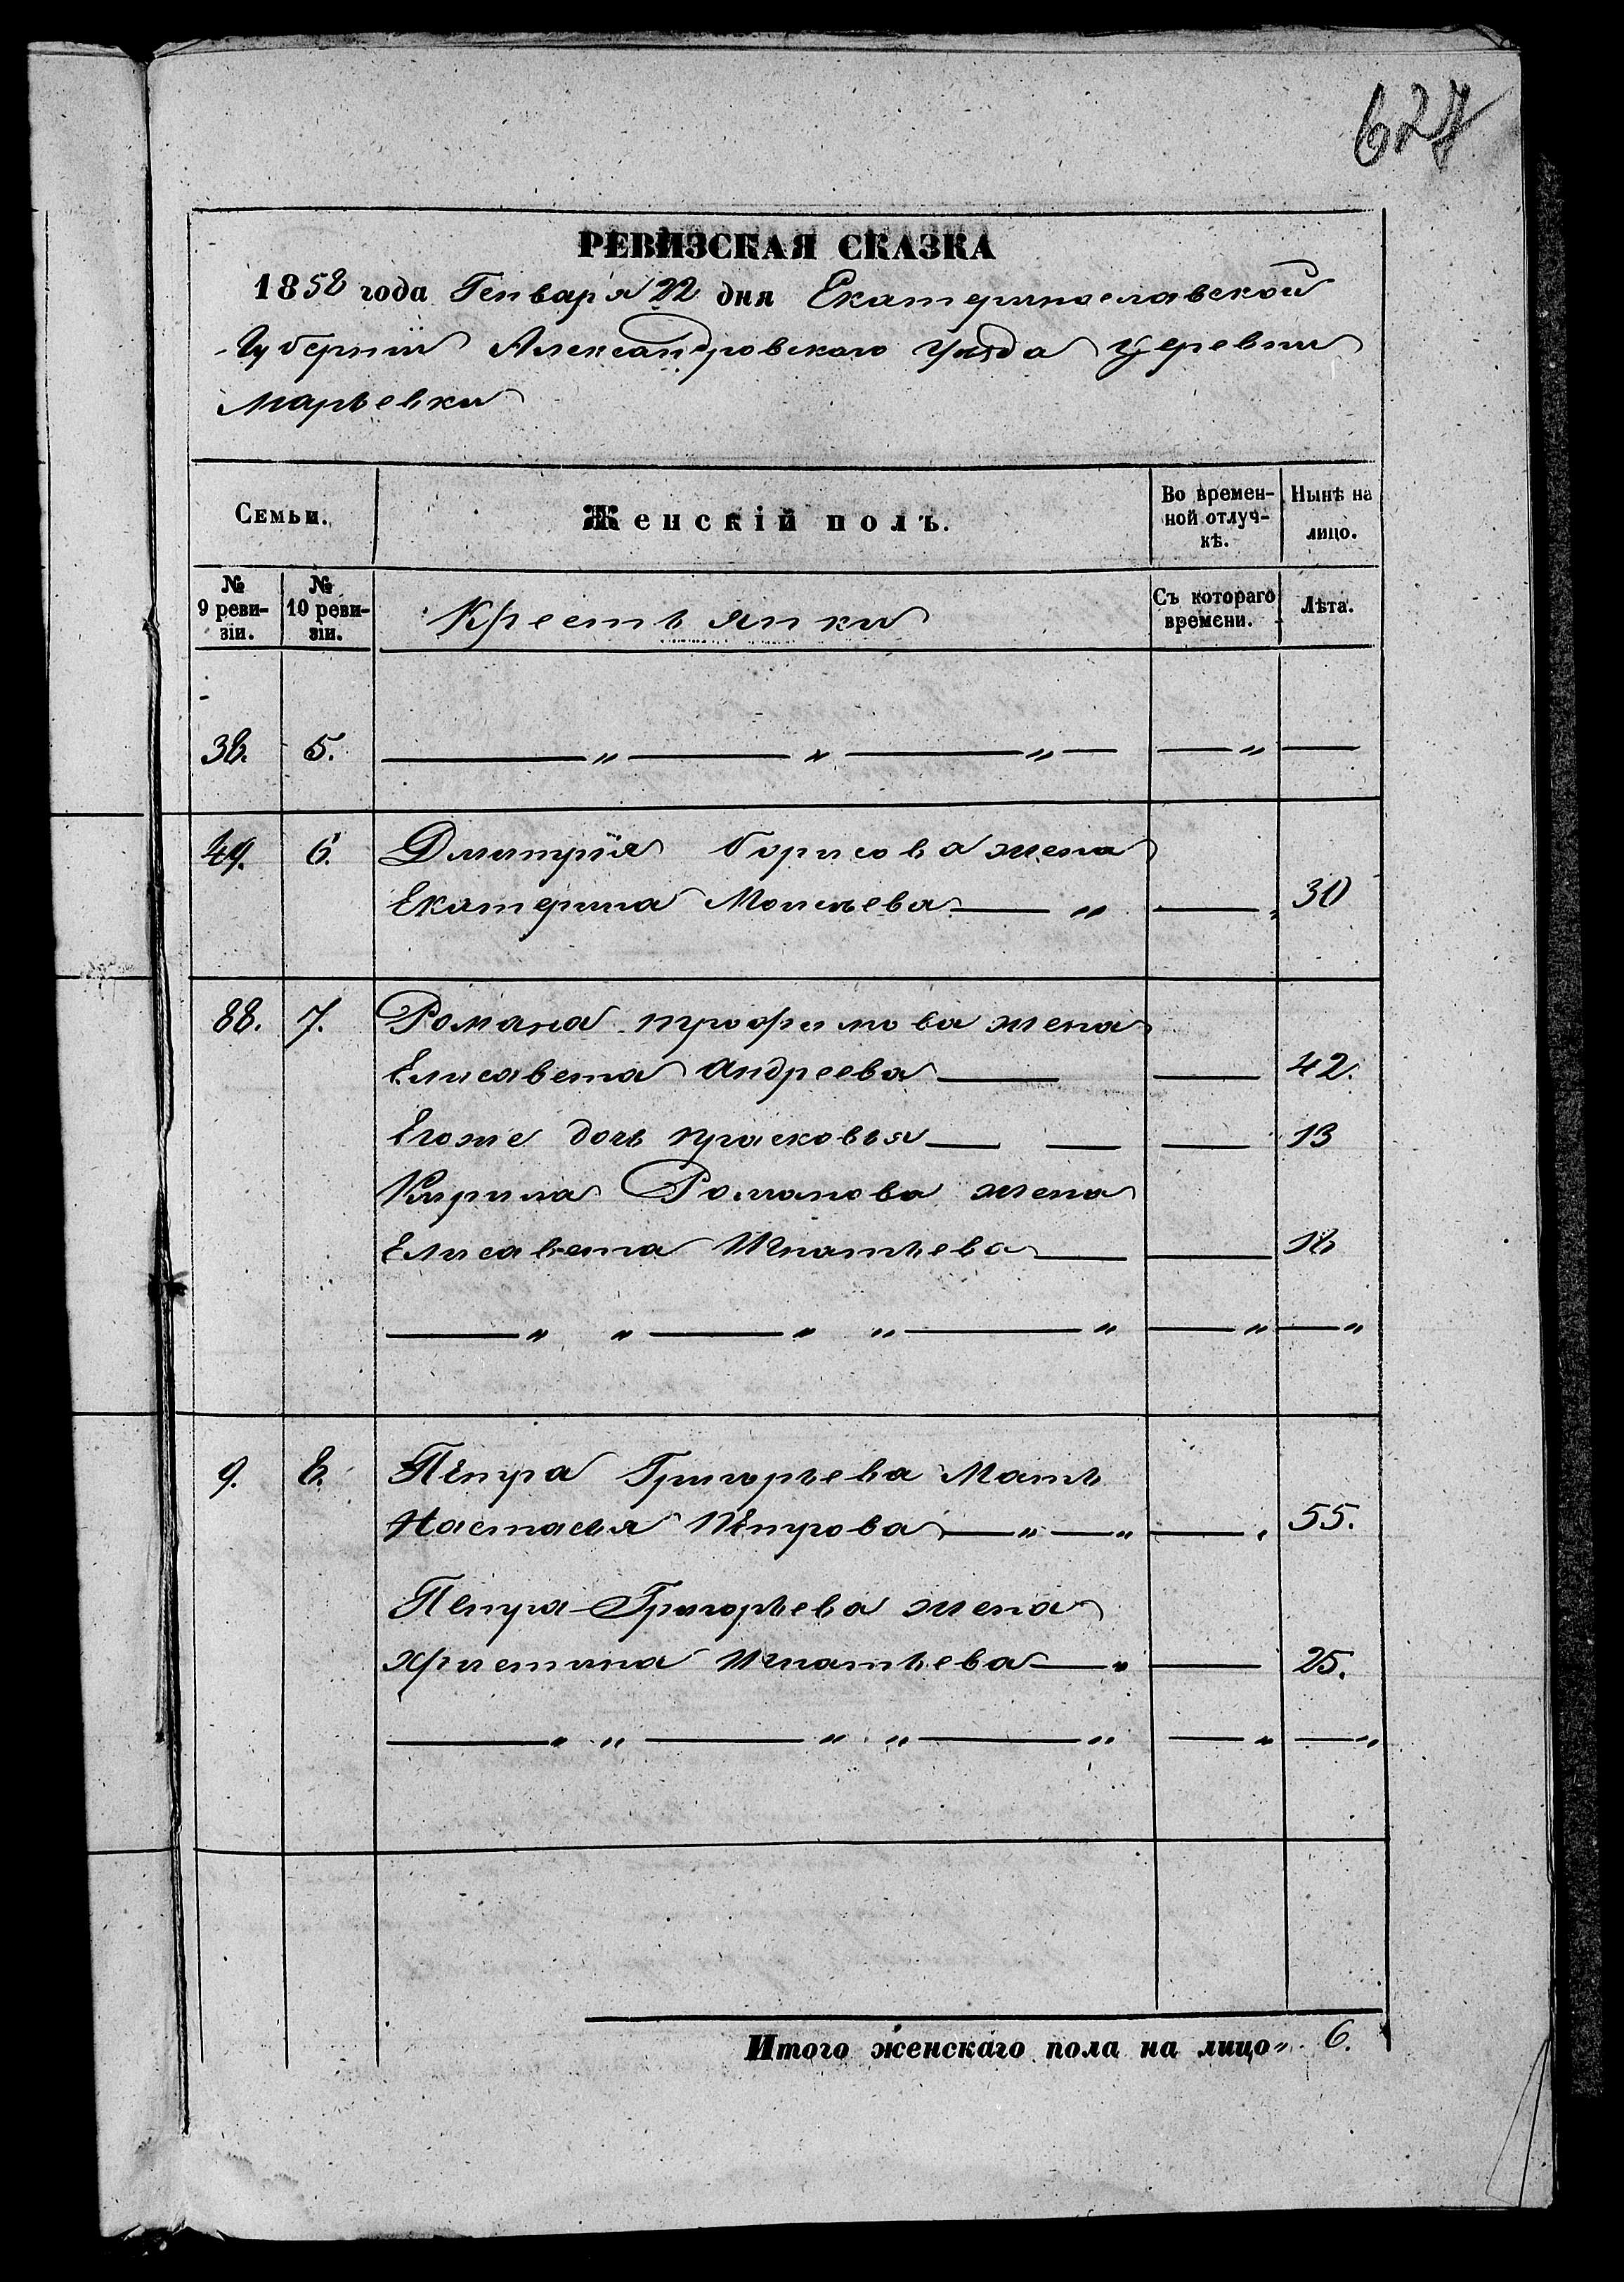 627
РЕВИЗСКАЯ СКАЗКА
1858 года Генваря 22 дня Екатеринославской
Губерніи Александровскаго Уезда Деревни
Марьевки
Семьи.
Женскій полъ.
Во времен-
ной отлуч-
кѣ.
Нынѣ на
лицо.
№
9 реви-
зіи.
№
10 реви-
зіи.
Крестьянки
Съ котораго
времени.
Лѣта.
38. 5. — „ — „ — „ — — „ —
49. 6. Дмитрія Борисова жена
Екатерина Моисѣева — „ — 30
88. 7. Романа трофимова жена
Елисавета Андреева — — 42.
Егоже дочь прасковья — — — 13
Кирила Романова жена
Елисавета Игнатьева — — 18
— „ „ — „ „ — „ — „ — „
9. 8. Петра Григорьева Мать
Настасья Петрова — „ — „ — 55.
Петра Григорьева жена
Христина Игнатьева — „ — 25.
— „ „ — „ „ — „ — „ — „
Итого женскаго пола на лицо „ 6.